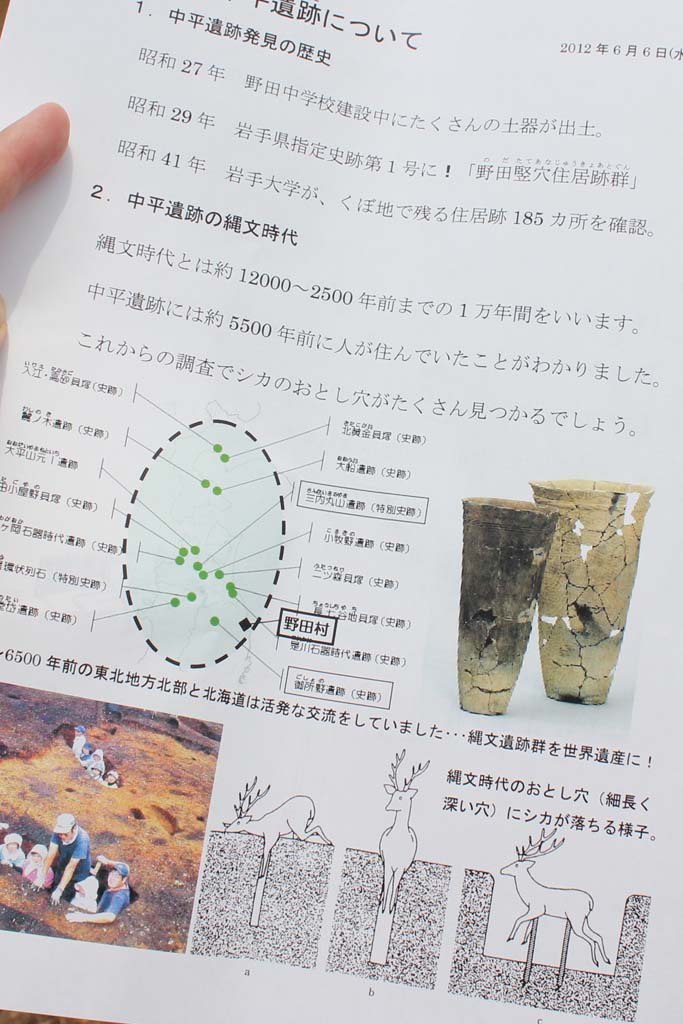 遺跡について
2012年6月6日(水
1．中平遺跡発見の歴史
昭和27年　野田中学校建設中にたくさんの土器が出土。
昭和29年　岩手県指定史跡第1号に！「野田竪穴住居跡群」
のだたてあなじゅうきょあとぐん
昭和41年　岩手大学が、くぼ地で残る住居跡185カ所を確認。
2．中平遺跡の縄文時代
縄文時代とは約12000～2500年前までの1万年間をいいます。
中平遺跡には約5500年前に人が住んでいたことがわかりました。
これからの調査でシカのおとし穴がたくさん見つかるでしょう。
入江・高砂貝塚（史跡）
鷲ノ木遺跡（史跡）
大平山元Ⅰ遺跡
田小屋野貝塚（史跡）
ヶ岡石器時代遺跡（史跡）
環状列石（特別史跡）
遺跡（史跡）
北黄金貝塚（史跡）
大船遺跡（史跡）
三内丸山遺跡（特別史跡）
小牧野遺跡（史跡）
二ツ森貝塚（史跡）
長七谷地貝塚（史跡）
野田村
是川石器時代遺跡（史跡）
御所野遺跡（史跡）
～6500年前の東北地方北部と北海道は活発な交流をしていました・・・縄文遺跡群を世界遺産に！
縄文時代のおとし穴（細長く
深い穴）にシカが落ちる様子。
a
b
c